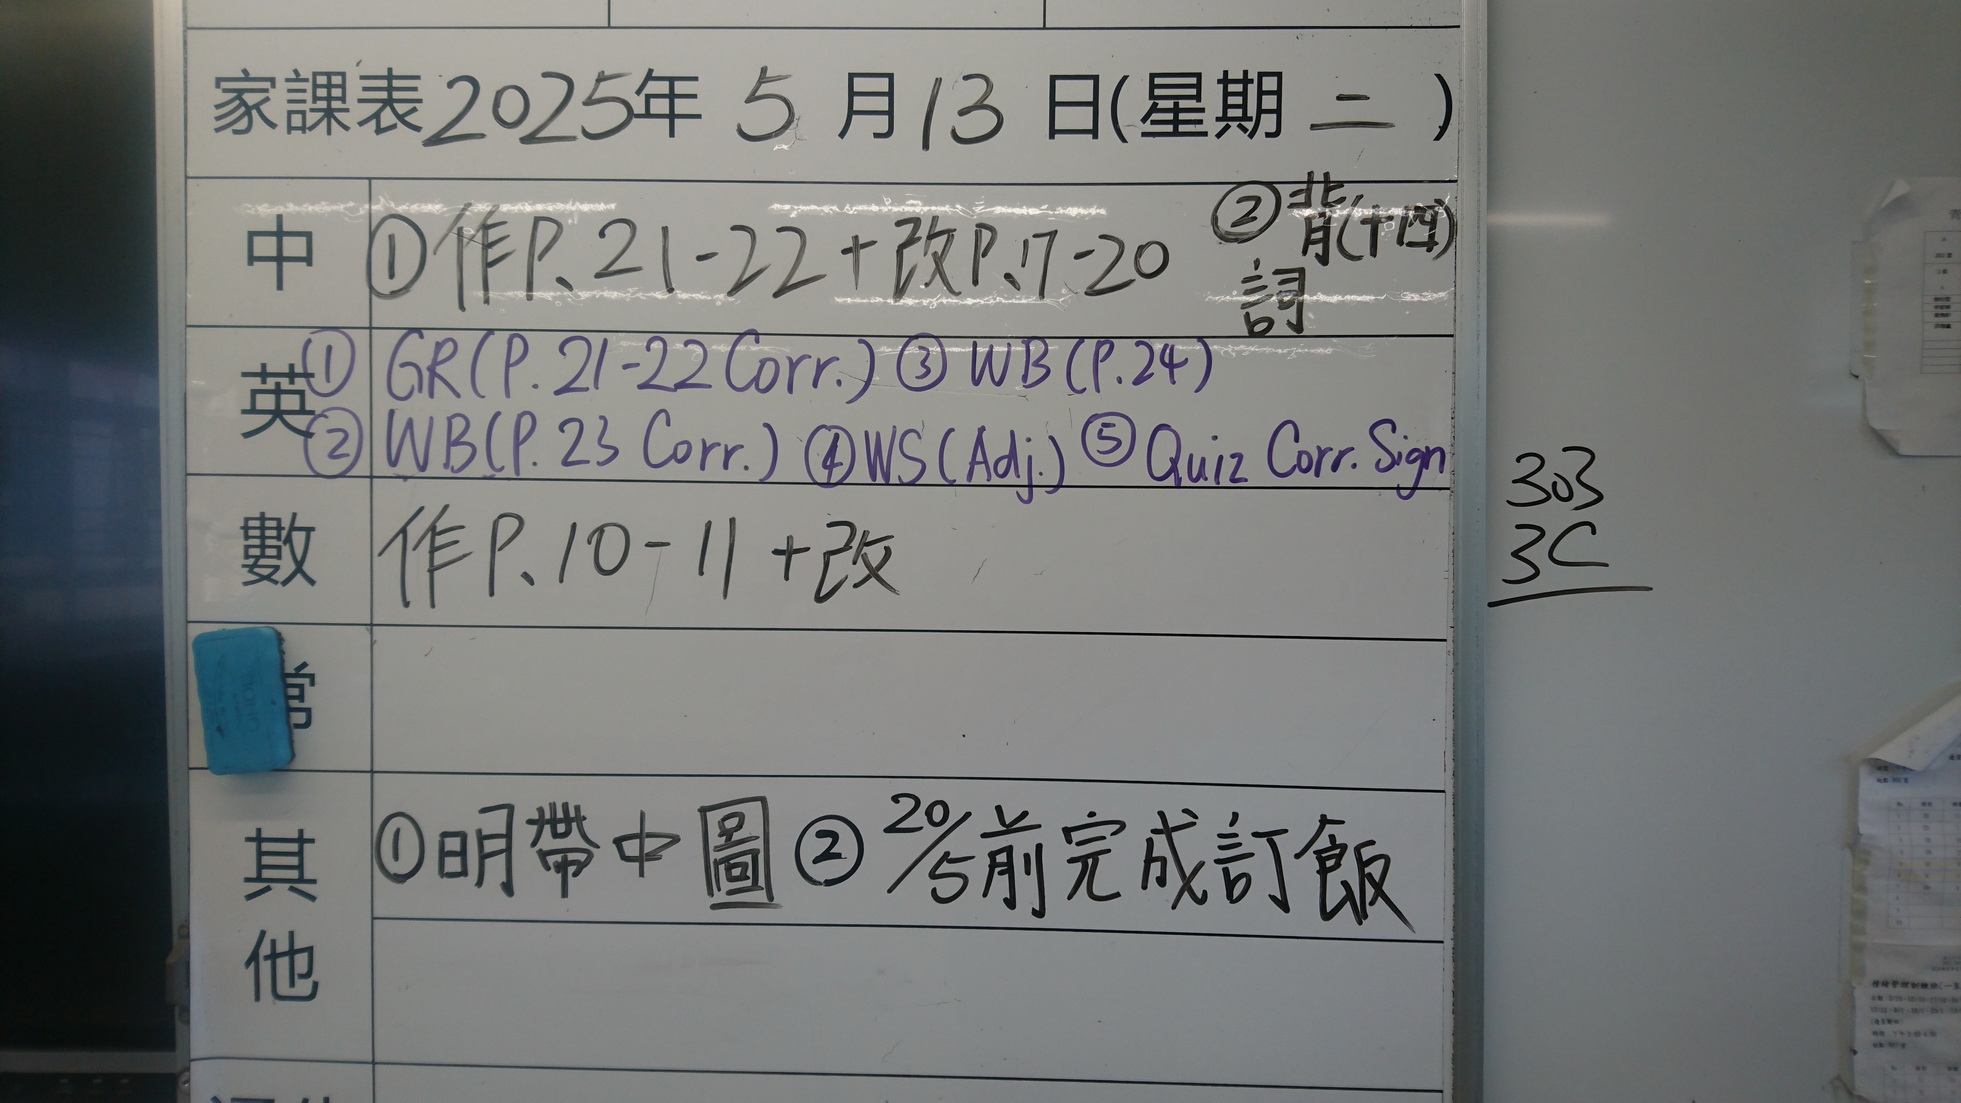 家課表2025年 5 月 13 日(星期 二 )
中 ①作P.21-22+改P.17-20 ②背(十四)
詞
英 ① GR(P.21-22 Corr.) ③ WB(P.24)
② WB(P.23 Corr.) ④WS(Adj.) ⑤Quiz Corr. Sign
數 作P.10-11+改
常
其他 ①明帶中圖 ②20/5前完成訂飯
303
3C